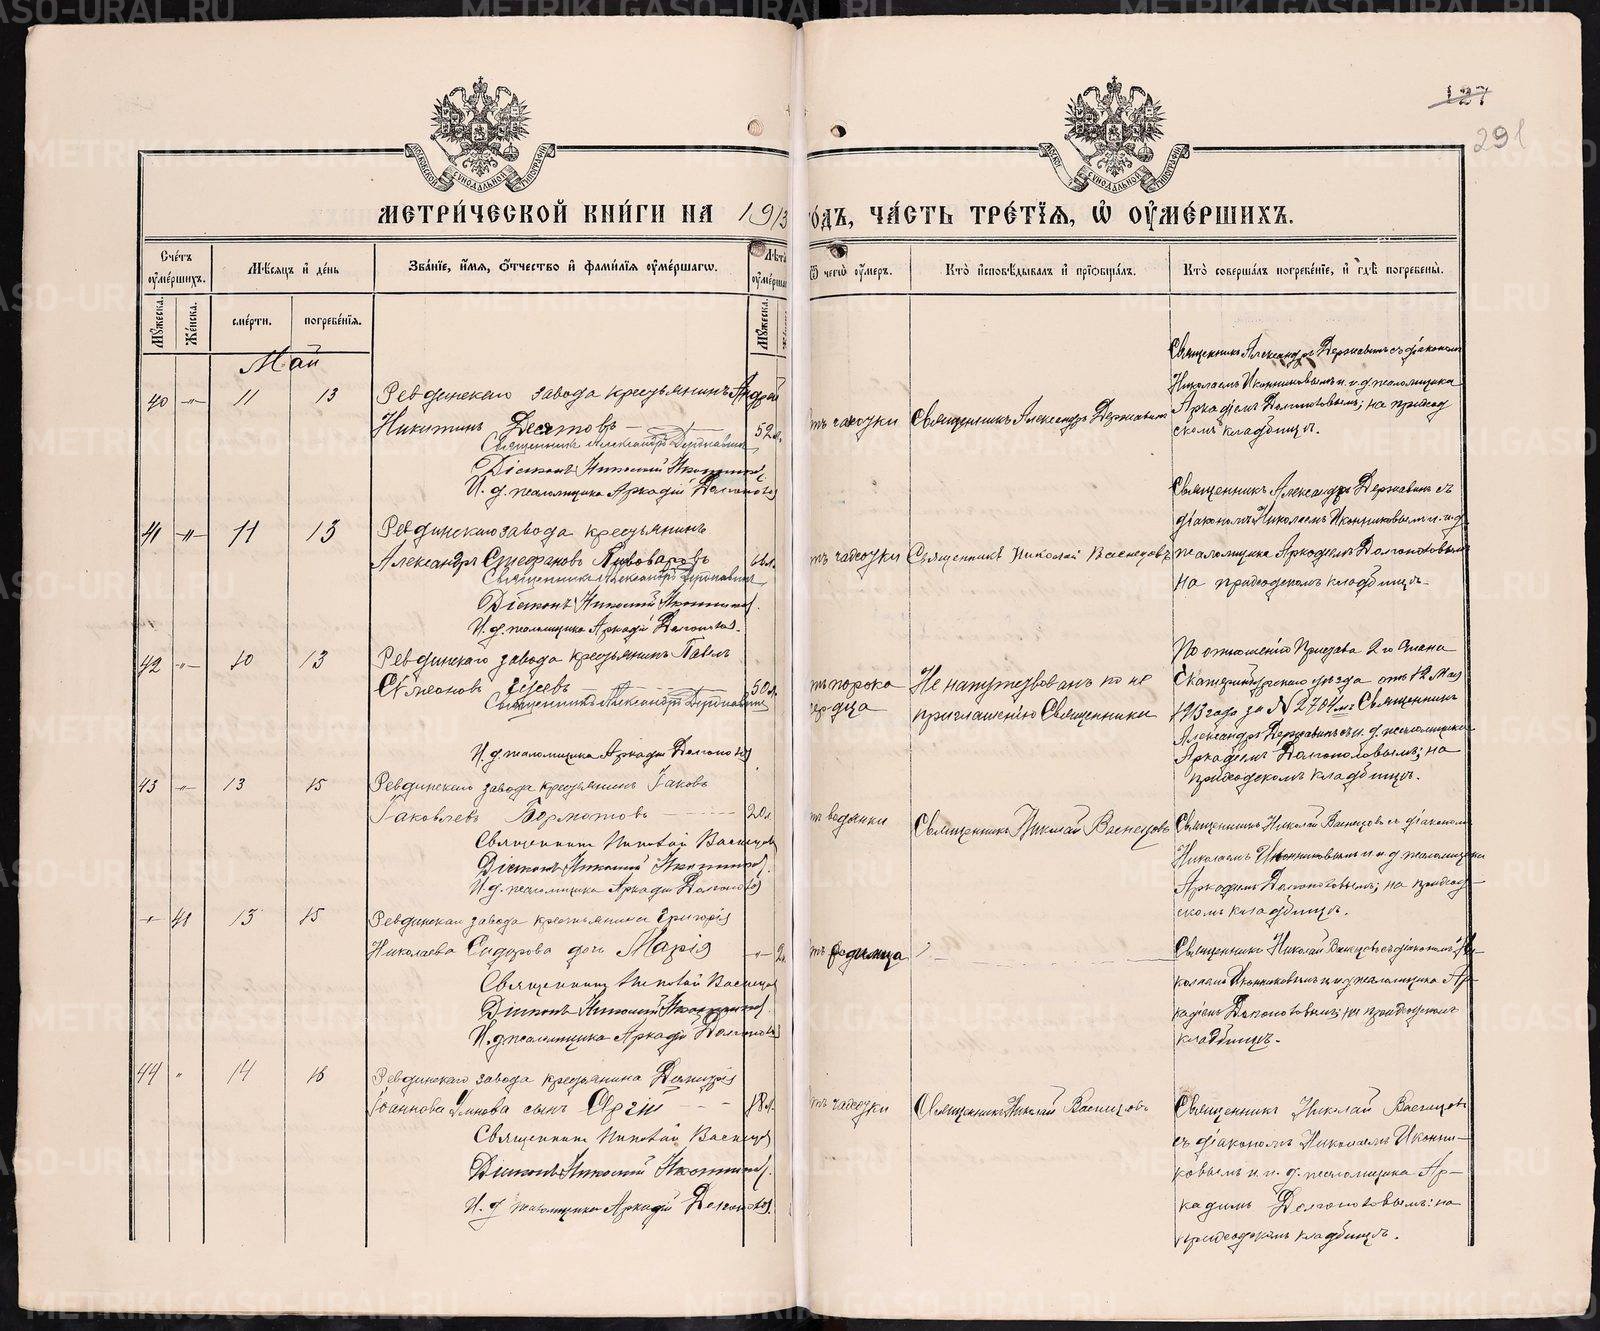 127
291
МЕТРИ́ЧЕСКОЙ КНИ́ГИ НА 1913
ОДЪ, ЧА́СТЬ ТРЕ́ТЇѦ, Ѡ҆ ОУ҆МЕ́РШИХЪ.
Сче́тъ оу҆ме́ршихъ.
Мѣ́сѧцъ и҆ де́нь
Зва́нїе, и҆́мѧ, ѻ҆́тчество и҆ фами́лїѧ оу҆ме́ршагѡ.
Мꙋ́жеска.
Же́нска.
сме́рти.
погребе́нїѧ.
Мꙋ́жеска.
Ѿ чегѡ̀ оу҆́меръ.
Кто̀ и҆сповѣ́дывалъ и҆ прїѡбща́лъ.
Кто̀ соверша́лъ погребе́нїе, и҆ гдѣ̀ погребены̀.
Май
40 -„- 11 13 Ревдинскаго завода крестьянинъ Андрей
Никитинъ Десятовъ — 52 л.
Священникъ Александръ Державинъ
Діаконъ Николай Иконниковъ
И. д. псаломщика Аркадій Долгополов
тъ чахотки
Священникъ Александръ Державинъ
Священникъ Александръ Державинъ съ діакономъ
Николаемъ Иконниковымъ и и. д. псаломщика
Аркадіемъ Долгополовымъ; на приход
скомъ кладбищѣ.
41 -„- 11 13 Ревдинскаго завода крестьянинъ
Александръ Стефановъ Пивоваровъ
Священникъ Александръ Державинъ
Діаконъ Николай Иконников.
И. д. псаломщика Аркадій Долгополов.
тъ чахотки
Священникъ Николай Васнецовъ
Священникъ Александръ Державинъ съ
діакономъ Николаемъ Иконниковымъ и и. д.
псаломщика Аркадіемъ Долгополовымъ
на приходскомъ кладбищѣ.
42 -„- 10 13 Ревдинскаго завода крестьянинъ Павелъ
Симеоновъ 50 л.
Священникъ Александръ Державинъ
И. д. псаломщика Аркадій Долгополов
тъ порока
сердца
Не напутствованъ по не
приглашенію Священника
По отношенію Пристава 2 го Стана
Екатеринбургскаго уѣзда отъ 12 Мая
1913 года за № 2704 мъ Священникъ
Александръ Державинъ съ и. д. псаломщика
Аркадіемъ Долгополовымъ; на
приходскомъ кладбищѣ.
43 -„- 13 15 Ревдинскаго завода крестьянинъ Іаковъ
Іаковлевъ Бормотовъ 20 л
Священникъ Николай Васнецов
Діаконъ Николай Иконников.
И. д. псаломщика Аркадій Долгополов
тъ водянки
Священникъ Николай Васнецовъ
Священникъ Николай Васнецовъ съ діакономъ
Николаемъ Иконниковымъ и и. д. псаломщика
Аркадіемъ Долгополовымъ; на приход-
скомъ кладбищѣ.
-„- 41 13 15 Ревдинскаго завода крестьянина Григорія
Николаева Сидорова дочь Марія -„- 2
Священникъ Николай Васнецов
Діаконъ Николай Иконников.
И. д. псаломщика Аркадій Долгополов
тъ родимца
Священникъ Николай Васнецовъ съ діакономъ Ни-
колаемъ Иконниковымъ и и. д. псаломщика Ар-
кадіемъ Долгополовымъ; на приходскомъ
кладбищѣ.
44 „ 14 16 Ревдинскаго завода крестьянина Димитрія
Іоаннова сынъ Сергій 18 л.
Священникъ Николай Васнецов
Діаконъ Николай Иконников.
И. д. псаломщика Аркадій Долгополов.
тъ чахотки
Священникъ Николай Васнецовъ
Священникъ Николай Васнецовъ
съ діакономъ Николаемъ Иконни-
ковымъ и и. д. псаломщика Ар-
кадіемъ Долгополовымъ: на
приходскомъ кладбищѣ.
METRIKI.GASO-URAL.RU